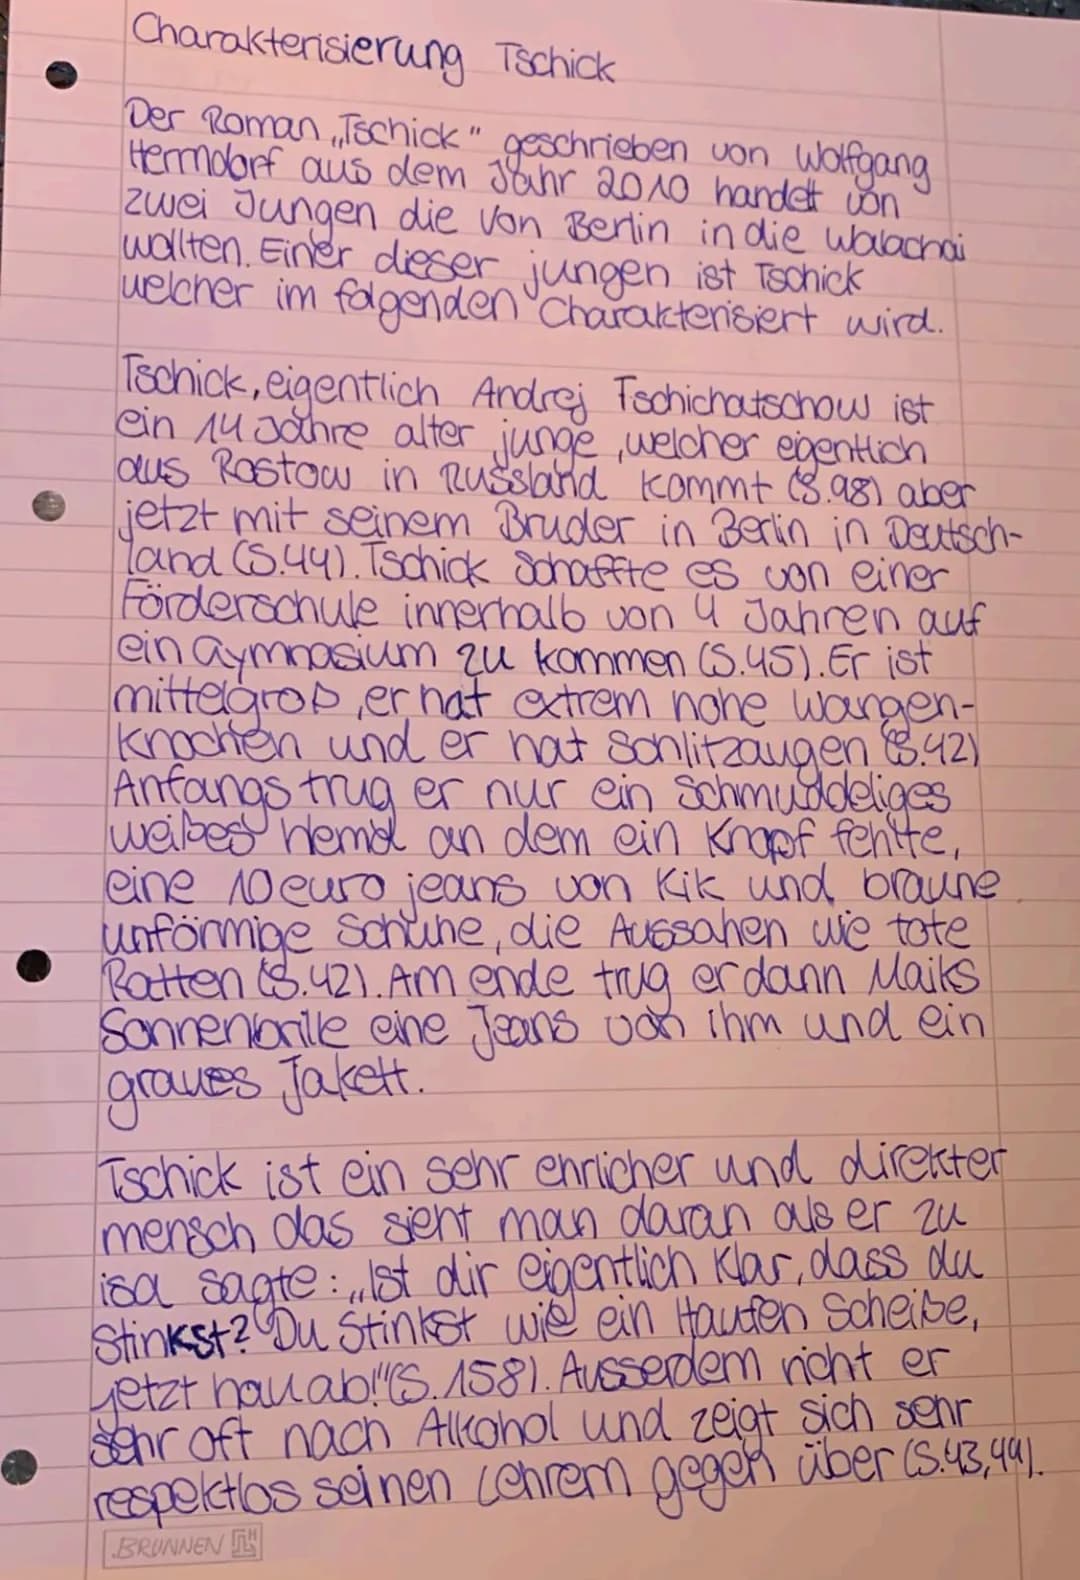 Charakterisierung Tschick
Der Roman „Tschick" geschrieben von Wolfgang
Herrndorf aus dem Jahr 2010 handelt von
zwei Jungen die von Berlin in die Walachai
wollten. Einer dieser jungen ist Tschick
welcher im folgenden Charakterisiert wird.
Tschick, eigentlich Andrej Tschichatschow ist
ein 14 Jahre alter junge, welcher eigentlich
aus Rostow in Russland kommt (S.98) aber
jetzt mit seinem Bruder in Berlin in Deutsch-
land (S.44). Tschick Schaffte es von einer
Förderschule innerhalb von 4 Jahren auf
ein Gymnasium zu kommen (S.45). Er ist
mittelgroß, er hat extrem hohe wangen-
knochen und er hat Schlitzaugen (S.42)
Anfangs trug er nur ein Schmuddeliges
weißes Hemd an dem ein Knopf fehlte,
eine 10 euro jeans von Kik und braune
unförmige Schuhe, die Aussahen wie tote
Ratten (S.42). Am ende trug er dann Maiks
Sonnenbrille eine Jeans von ihm und ein
graues Jakett.
Tschick ist ein sehr ehrlicher und direkter
mensch das sieht man daran als er zu
isa sagte: „Ist dir eigentlich klar, dass du
Stinkst? Du Stinkst wie ein Haufen Scheiße,
jetzt hau ab!" (S.158). Ausserdem richt er
sehr oft nach Alkohol und zeigt sich sehr
respektlos seinen Lehrern gegen über (S.43,44).
BRUNNEN